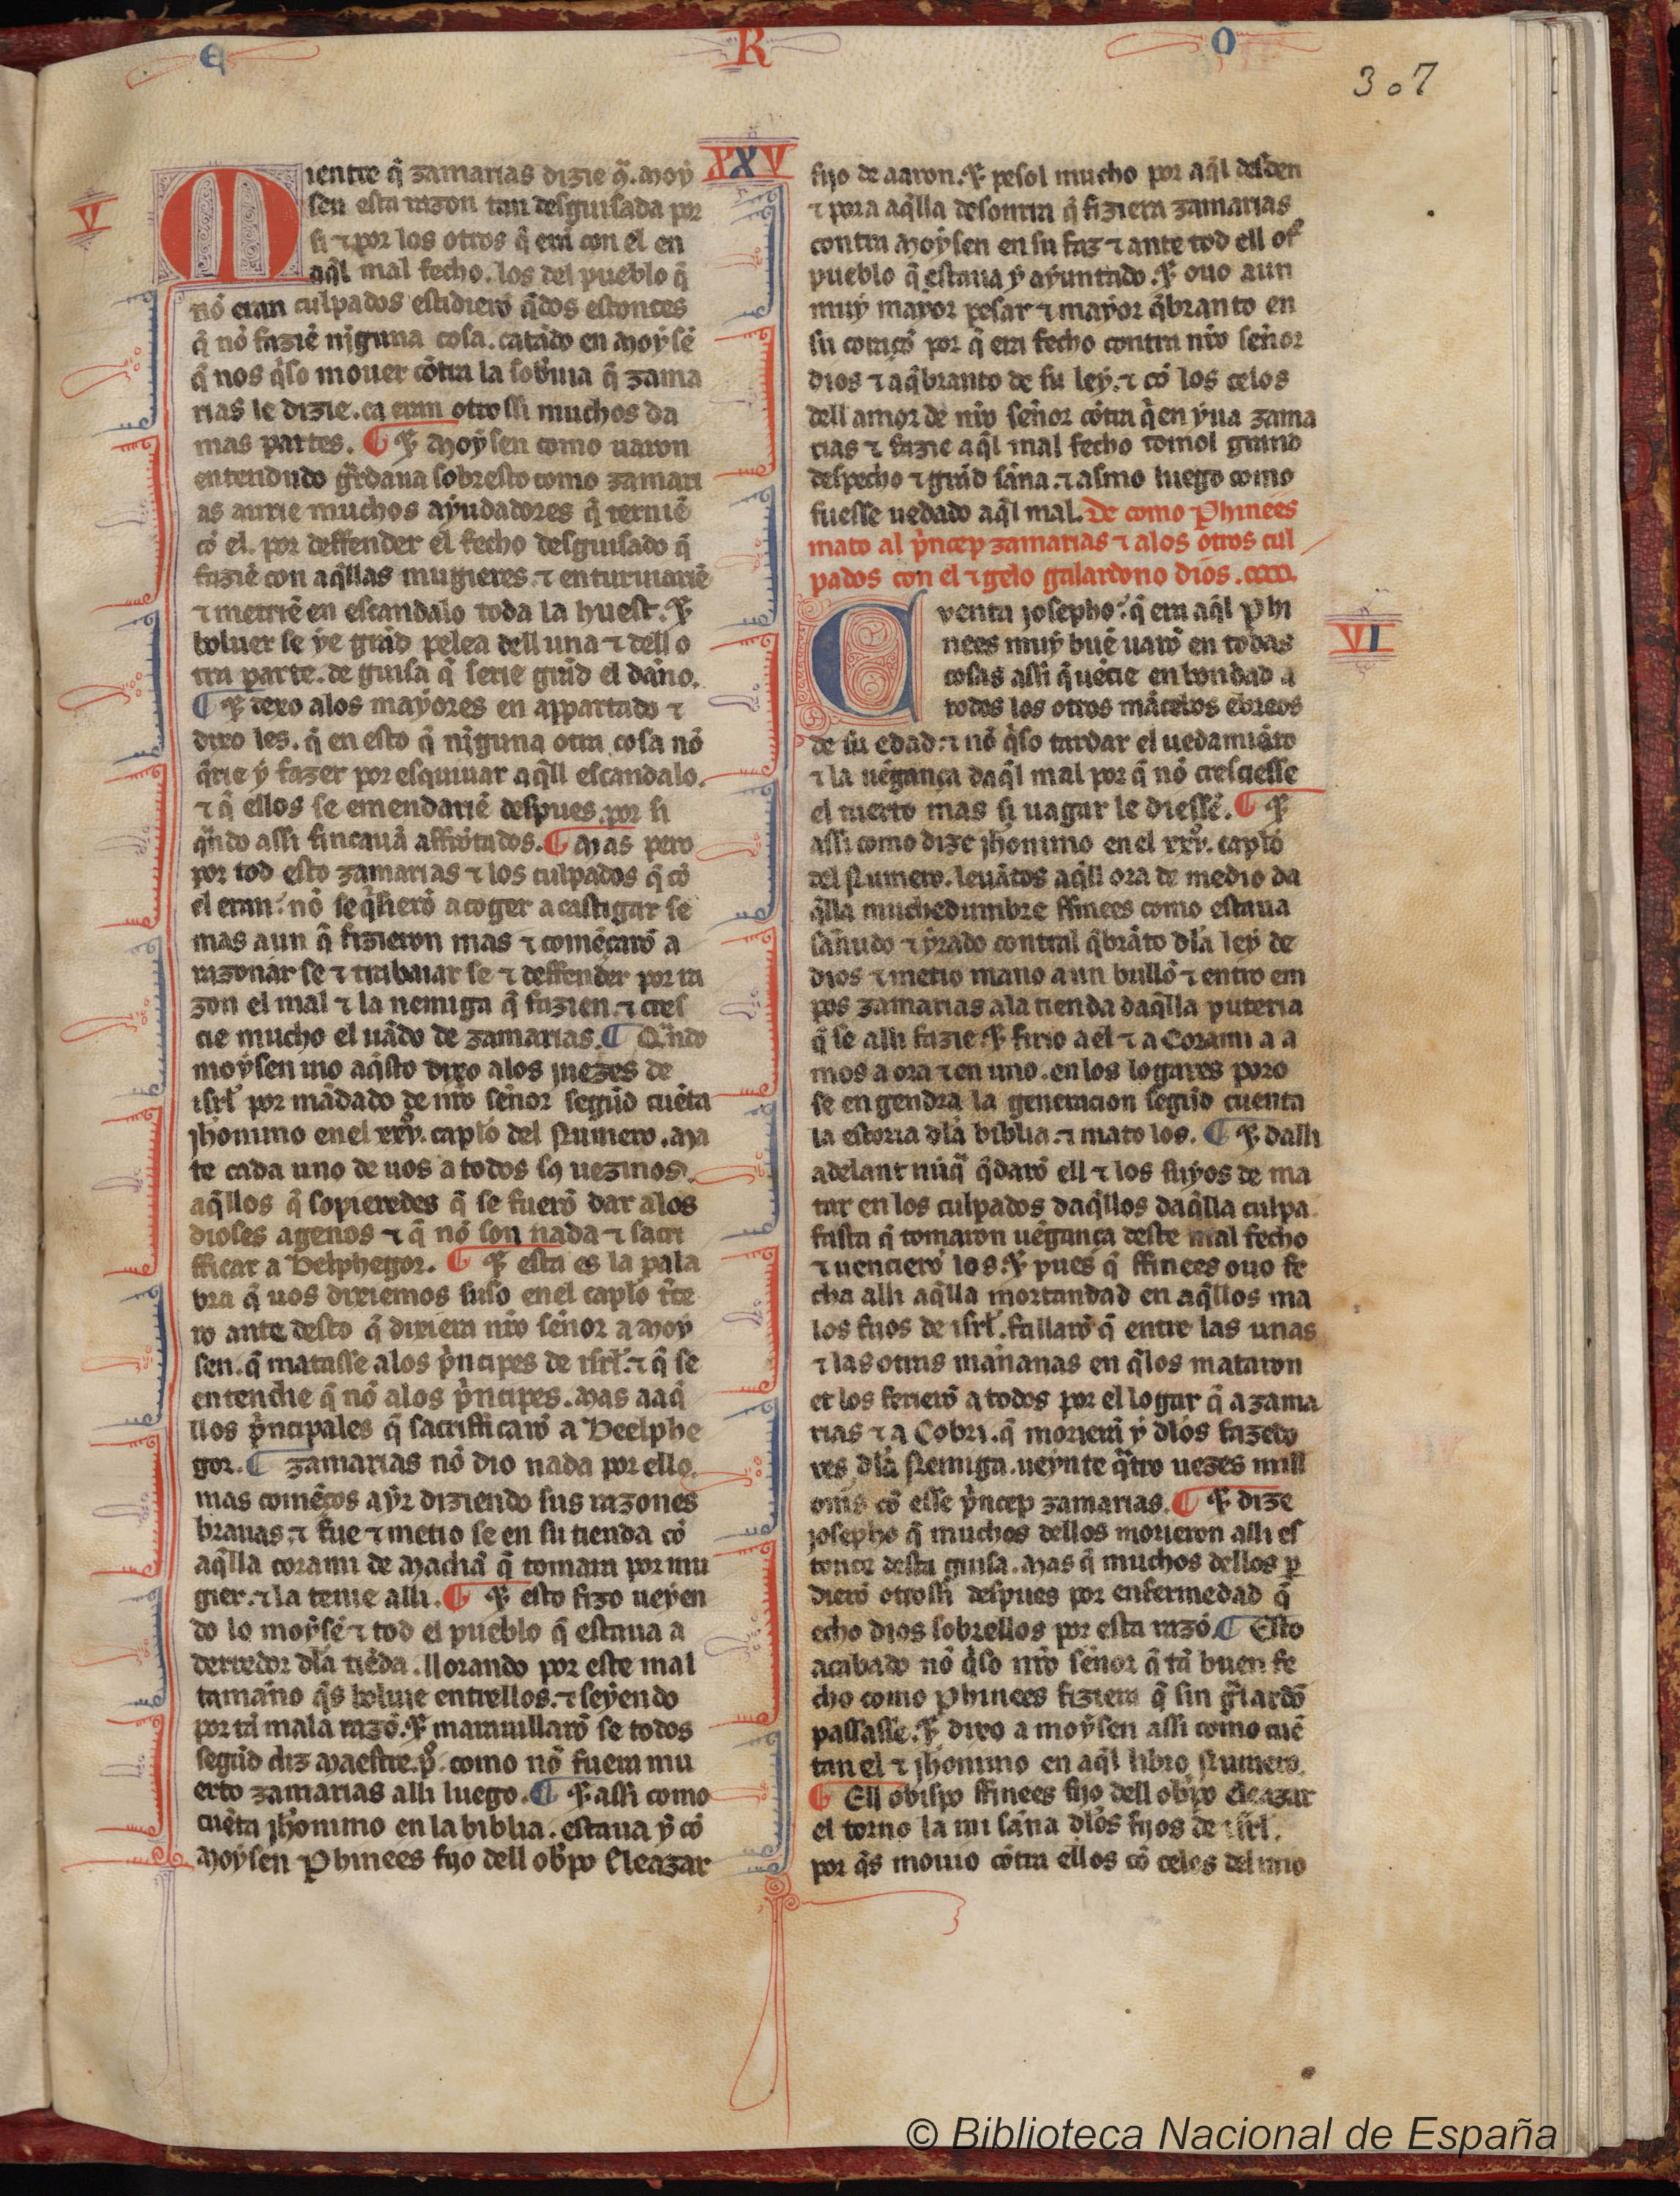 E R O
307
XXV
V
Mientre q̃ zamarias dizie a̾. Moy
sen esta razon tan desguisada por
si ⁊ por los otros q̃ erã con el en
aq̃l mal fecho. los del pueblo q̃
nõ eran culpados estidierõ q̃dos estonces
q̃ nõ faziẽ niguna cosa. catãdo en Moysẽ
q̃ nos q̃so mouer cõtra la soƀuia q̃ zama
rias le dizie. ca eran otrossi muchos da
mas partes. ¶ ⁊ Moysen como uaron
entendudo gr̃daua sobresto como zamari
as aurie muchos ayudadores q̃ terniẽ
cõ el. por deffender el fecho desguisado q̃
faziẽ con aq̃llas mugieres. ⁊ enturuiariẽ
⁊ metriẽ en escandalo toda la huest. ⁊
boluer se ye grãd pelea dell una ⁊ dell o
tra parte. de guisa q̃ serie grãd el daño.
¶ ⁊ dexo alos mayores en appartado ⁊
dixo les. q̃ en esto q̃ niguna otra cosa nõ
q̃rie y fazer por esquiuar aq̃ll escandalo.
⁊ q̃ ellos se emendariẽ despues. por si
q̃ndo assi fincauã affrõtados. ¶ Mas pero
por tod esto zamarias ⁊ los culpados q̃ cõ
el eran. nõ se q̃sierõ acoger a castigar se
mas aun q̃ fizieron mas ⁊ comẽçarõ a
razonar se ⁊ trabaiar se ⁊ deffender por ra
zon el mal ⁊ la nemiga q̃ fazien. ⁊ cres
cie mucho el uãdo de zamarias. ¶ Q̃ndo
moysen uio aq̃sto dixo alos juezes de
isrł por mãdado de nr̃o señor segũd cuẽta
jheronimo enel xxv. capłõ del Numero. Ma
te cada uno de uos a todos sus uezinos.
aq̃llos q̃ sopieredes q̃ se fuerõ dar alos
dioses agenos ⁊ q̃ nõ son nada ⁊ sacri
fficar a Belphegor. ¶ ⁊ esta es la pala
bra q̃ uos dixiemos suso enel capłõ t̃ce
ro ante desto q̃ dixiera nr̃o señor a Moy
sen. q̃ matasse alos p̃ncipes de isrł. ⁊ q̃ se
entende q̃ nõ alos p̃ncipes. Mas a aq̃
llos p̃ncipales q̃ sacrifficarõ a Beelphe
gor. ¶ zamarias nõ dio nada por ello.
mas comẽços a yr diziendo sus razones
brauas. ⁊ fue ⁊ metio se en su tienda cõ
aq̃lla corami de Machiã q̃ tomara por mu
gier. ⁊ la tenie alli. ¶ ⁊ esto fizo ueyen
do lo moysẽ ⁊ tod el pueblo q̃ estaua a
derredor dła tiẽda. llorando por este mal
tamaño q̃s boluie entrellos. ⁊ seyendo
por tã mala razõ. ⁊ marauillarõ se todos
segũd diz Maestre. p̃. como nõ fuera mu
erto zamarias alli luego. ¶ ⁊ assi como
cuẽta jheronimo en la biblia. estaua y cõ
Moysen Phinees fijo dell ob̃po Eleazar
fijo de aaron. ⁊ pesol mucho por aq̃l desden
⁊ pora aq̃lla desonrra q̃ fiziera zamarias
contra Moysen en su faz ⁊ ante tod ell ot̃
pueblo q̃ estaua y ayuntado. ⁊ ouo aun
muy mayor pesar ⁊ mayor q̃branto en
su coraçõ por q̃ era fecho contra nr̃o señor
dios ⁊ a q̃branto de su ley. ⁊ cõ los celos
dell amor de nr̃o señor cõtra q̃en yua zama
rias ⁊ fazie aq̃l mal fecho tomol grand
despecho ⁊ grãd saña. ⁊ asmo luego como
fuesse uedado aq̃l mal. De como Phinees
mato al p̃ncep zamarias ⁊ alos otros cul
pados con el ⁊ gelo galardono dios.
VI
Cventa josepho. q̃ era aq̃l Phi
nees muy buẽ uarõ en todas
cosas assi q̃ uẽcie en bondad a
todos los otros mãcebos ebreos
de su edad. ⁊ nõ q̃so tardar el uedamiẽto
⁊ la uẽgança daq̃l mal por q̃ nõ cresciesse
el tuerto mas si uagar le diessẽ. ¶ ⁊
assi como dize jheronimo en el xxv. capłõ
del Numero. leuãtos aq̃ll ora de medio da
q̃lla muchedumbre ffinees como estaua
sañudo ⁊ yrado contral q̃brãto dła ley de
dios ⁊ metio mano a un bullõ ⁊ entro em
pos zamarias ala tienda daq̃lla puteria
q̃ se alli fazie. ⁊ firio a el ⁊ a Corami a a
mos a ora ⁊ en uno. en los logares poro
se en gendra la generacion segũd cuenta
la estoria dła biblia. ⁊ mato los. ¶ ⁊ dalli
adelant nũq̃ q̃darõ ell ⁊ los suyos de ma
tar en los culpados daq̃llos daq̃lla culpa.
fasta q̃ tomaron uẽgança deste mal fecho
⁊ uencierõ los. ⁊ pues q̃ ffinees ouo fe
cha alli aq̃lla mortandad en aq̃llos ma
los fijos de isrł. fallarõ q̃ entre las unas
⁊ las otras mañanas en q̃los mataron
et los ferierõ a todos por el logar q̃ a zama
rias ⁊ a Cobri. q̃ morierã y dłos fazedo
res dła Nemiga. ueynte q̃tro uezes mill
om̃s cõ esse p̃ncep zamarias. ¶ ⁊ dize
josepho q̃ muchos dellos morieron alli es
tonce desta guisa. Mas q̃ muchos dellos p̱
dierõ otrossi despues por enfermedad q̃
echo dios sobrellos por esta razõ. ¶ Esto
acabado nõ q̃so nr̃o señor q̃ tã buen fe
cho como Phinees fiziera q̃ sin gr̃lardõ
passasse. ⁊ dixo a moysen assi como cuẽ
tan el ⁊ jheronimo en aq̃l libro Numero.
¶ Ell obispo ffinees fijo dell ob̃po Eleazar
el torno la mi saña dłos fijos de isrł.
por q̃s mouio cõtra ellos cõ celos del mio
© Biblioteca Nacional de España